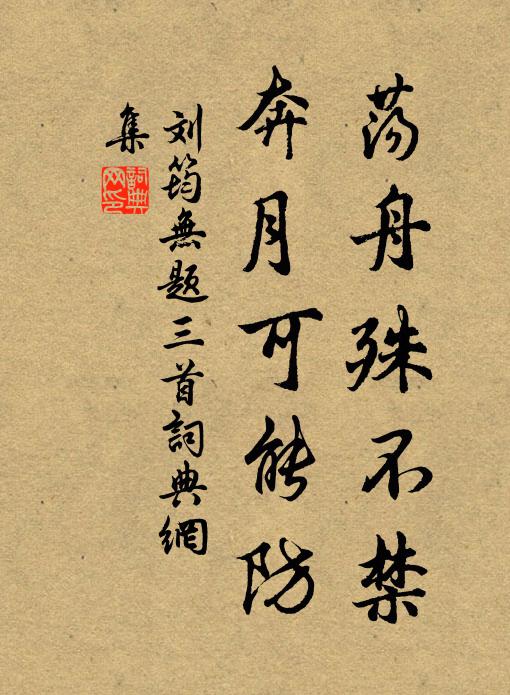 荡舟殊不禁
奔月可能防
刘筠無题三首詞典網
集
詞典网印